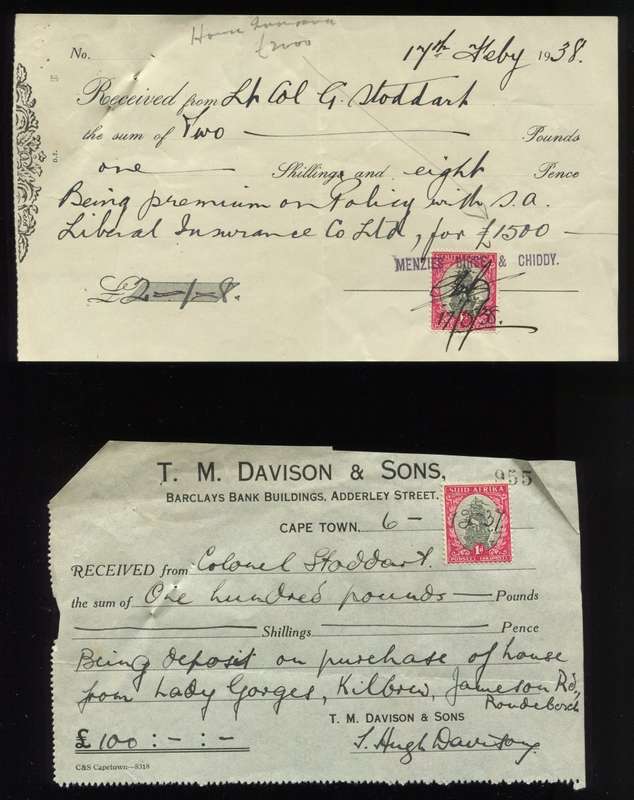 House Insurance
£2000
No.
17th Feby 1938.
Received from Lt Col G. Stoddart
the sum of Two Pounds
one Shillings and eight Pence
Being premium on Policy with S.A.
Liberal Insurance Co Ltd, for £1500
MENZIES & CHIDDY.
£2-1-8.
17/2/38.
T. M. DAVISON & SONS,
955
BARCLAYS BANK BUILDINGS, ADDERLEY STREET.
SUID-AFRIKA
CAPE TOWN. 6 - 8. 37.
1D
RECEIVED from Colonel Stoddart.
the sum of One hundred pounds Pounds
Shillings Pence
Being deposit on purchase of house
from Lady Gorges, Kilbrew, Jameson Rd,
Rondebosch
T. M. DAVISON & SONS
£100 : - : -
J. Hugh Davison.
C&S Capetown—8318